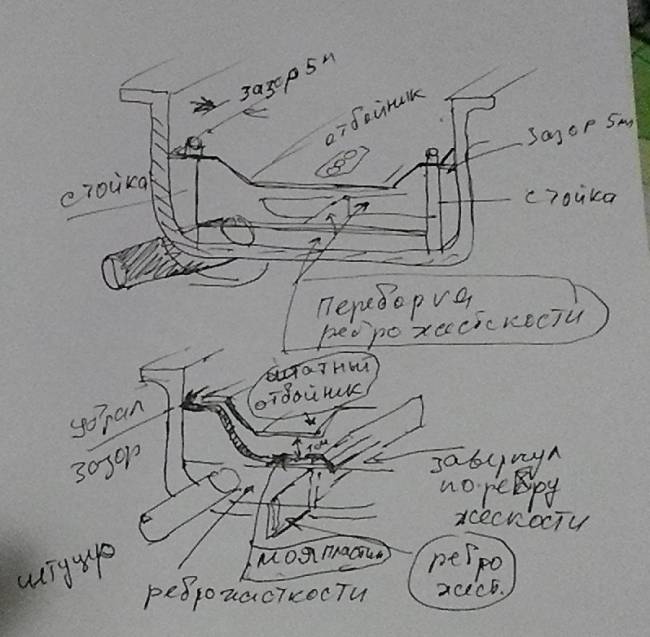 зазор 5м
отбойник
зазор 5м
стойка
стойка
Переборка
ребро жесткости
штатный
отбойник
убрал
зазор
1см
завернул
по ребру
жескости
штуцер
моя пластин
ребро жисткости
ребро
жест.